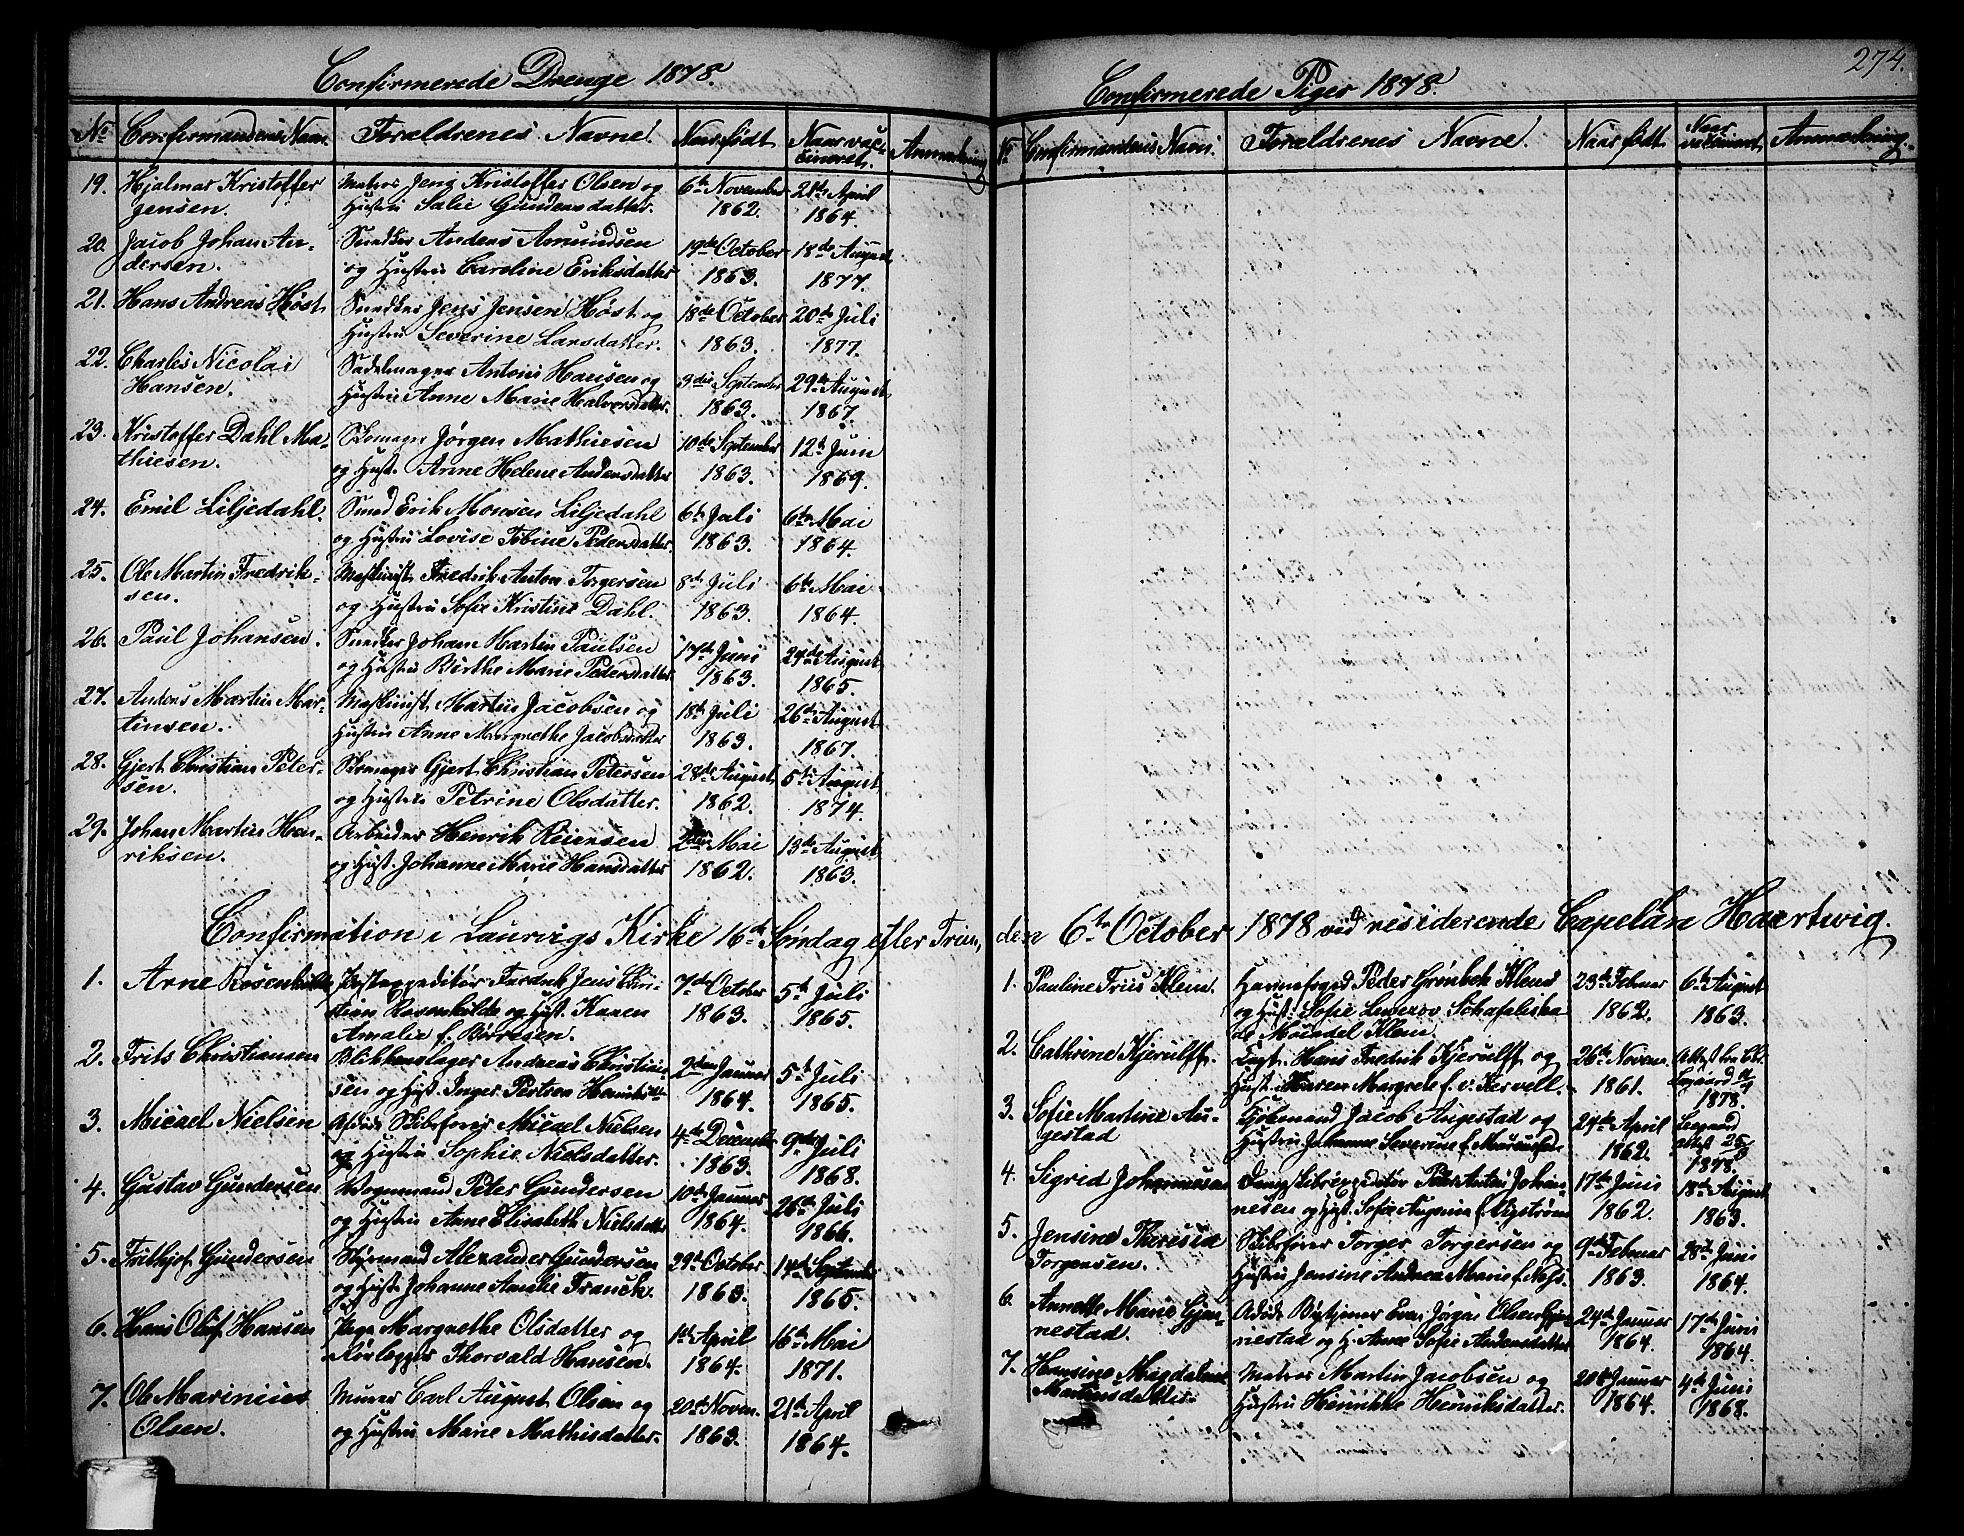 Confirmerede Drenge 1878.
No Confirmandens Navn. Forældrenes Navne. Naar født Naar vaccineret. Anmerkning
19. Hjalmar Kristoffer Matros Jens Kristoffer Olsen og 6te November 21de April
Jensen. Hustru Salie Gundersdatter. 1862. 1864.
20. Jacob Johan An- Snedker Anders Amundsen 19de October 18de August
dersen. og Hustru Caroline Eriksdatter 1863. 1877.
21. Hans Andreas Høst Snedker Jens Jensen Høst og 18de October 20de Juli
Hustru Severine Larsdatter. 1863. 1877.
22. Charles Nicolai Sadelmager Antoni Hansen og 3die September 29de August
Hansen. Hustru Anne Marie Halvorsdatter. 1863. 1867.
23. Kristoffer Dahl Ma- Skomager Jørgen Mathiesen 10de September 12te Juni
thiesen. og Hust. Anne Helene Andersdatter 1863. 1869.
24. Emil Liljedahl. Smed Erik Monsen Liljedahl 6te Juli 6te Mai
og Hustru Lovise Tobine Pedersdatter. 1863. 1864.
25. Ole Martin Fredrik- Maskinist Fredrik Anton Torgersen 8de Juli 6te Mai
sen. og Hustru Sofie Kristine Dahl. 1863. 1864.
26. Paul Johansen. Snedker Johan Martin Paulsen 17de Juni 24de August
og Hustru Birthe Marie Pedersdatter 1863. 1865.
27. Anders Martin Mar- Maskinist Martin Jacobsen og 18de Juli 26de August
tinsen. Hustru Anne Margrethe Jacobsdatter 1863. 1867.
28. Gjert Christian Peter- Skomager Gjert Christian Petersen 28de August 5te August
sen. og Hustru Petrine Olsdatter. 1862. 1874.
29. Johan Martin Hen- Arbeider Henrik Reiersen 2den Mai 13de August
riksen. og Hust. Johanne Marie Hansdatter 1862. 1863.
Confirmation i Laurvigs Kirke 16de Søndag efter Trin,
1. Arne Rosenkilde Postexpeditør Fredrik Jens Chri- 7de October 5te Juli
stian Rosenkilde og Hust. Karen 1863. 1865.
Amalie f. Børresen.
2. Frits Christiansen Blikkenslager Andreas Christian- 2den Januar 5te Juli
sen og Hust. Inger 1864. 1865.
3. Micael Nielsen Afdøde Skibsfører Micael Nielsen 4de December 9de Juli
og Hustru Sophie Nielsdatter. 1863. 1868.
4. Gustav Gundersen Vognmand Peter Gundersen 10de Januar 26de Juli
og Hustru Anne Elisabeth Nielsdatter 1864. 1866.
5. Frithjof Gundersen Styrmand Alexander Gundersen 29de October 14de September
og Hust. Johanne Amalie Franck. 1863. 1865.
6. Hans Olaf Hansen Pige Margrethe Olsdatter og 1ste April 16de Mai
Rørlægger Thorvald Hansen. 1864. 1871.
7. Ole Marinius Murer Carl August Olsen og 20de Novem. 21de April
Olsen. og Hustru Marie Mathisdatter. 1863. 1864.
274.
Confirmerede Piger 1878.
No Confirmandens Navn. Forældrenes Navne. Naar født Naar vaccineret Anmerkning.
den 6te October 1878 ved residerende Capelan Haartwig.
1. Pauline Friis Klem. Havnefoged Peder Grønbek Klem 23de Februar 6te August
og Hust. Sofie 1862. 1863.
Klem
2. Cathrine Kjerulff. Capt. Hans Fredrik Kjerulff og 26de Novem. Attest fra
Hust. Karen Margrete f. v. Kervell. 1861. 1878.
3. Sofie Martine Au- Kjøbmand Jacob Augestad og 24de April
gestad Hustru Johanne Severine f. 1862. attest 1878.
4. Sigrid Johannesen Peter Anton Johan- 17de Juni 18de August
nesen og Hust. Sofie 1862. 1863.
5. Jensine Theresie Skibsfører Torger Torgersen og 9de Februar 28de Juni
Torgersen. Hustru Jensine Andrea Marie f. 1863. 1864.
6. Annette Marie Gjen- Afdøde Olsen Gjen- 24de Januar 17de Juni
nestad. nestad og H. Anne Sofie Andersdatter 1864. 1864.
7. Hansine Magdalene Matros Martin Jacobsen og 20de Januar 4de Juni
Martinsdatter. Hustru Henrikke Henriksdatter. 1864. 1868.